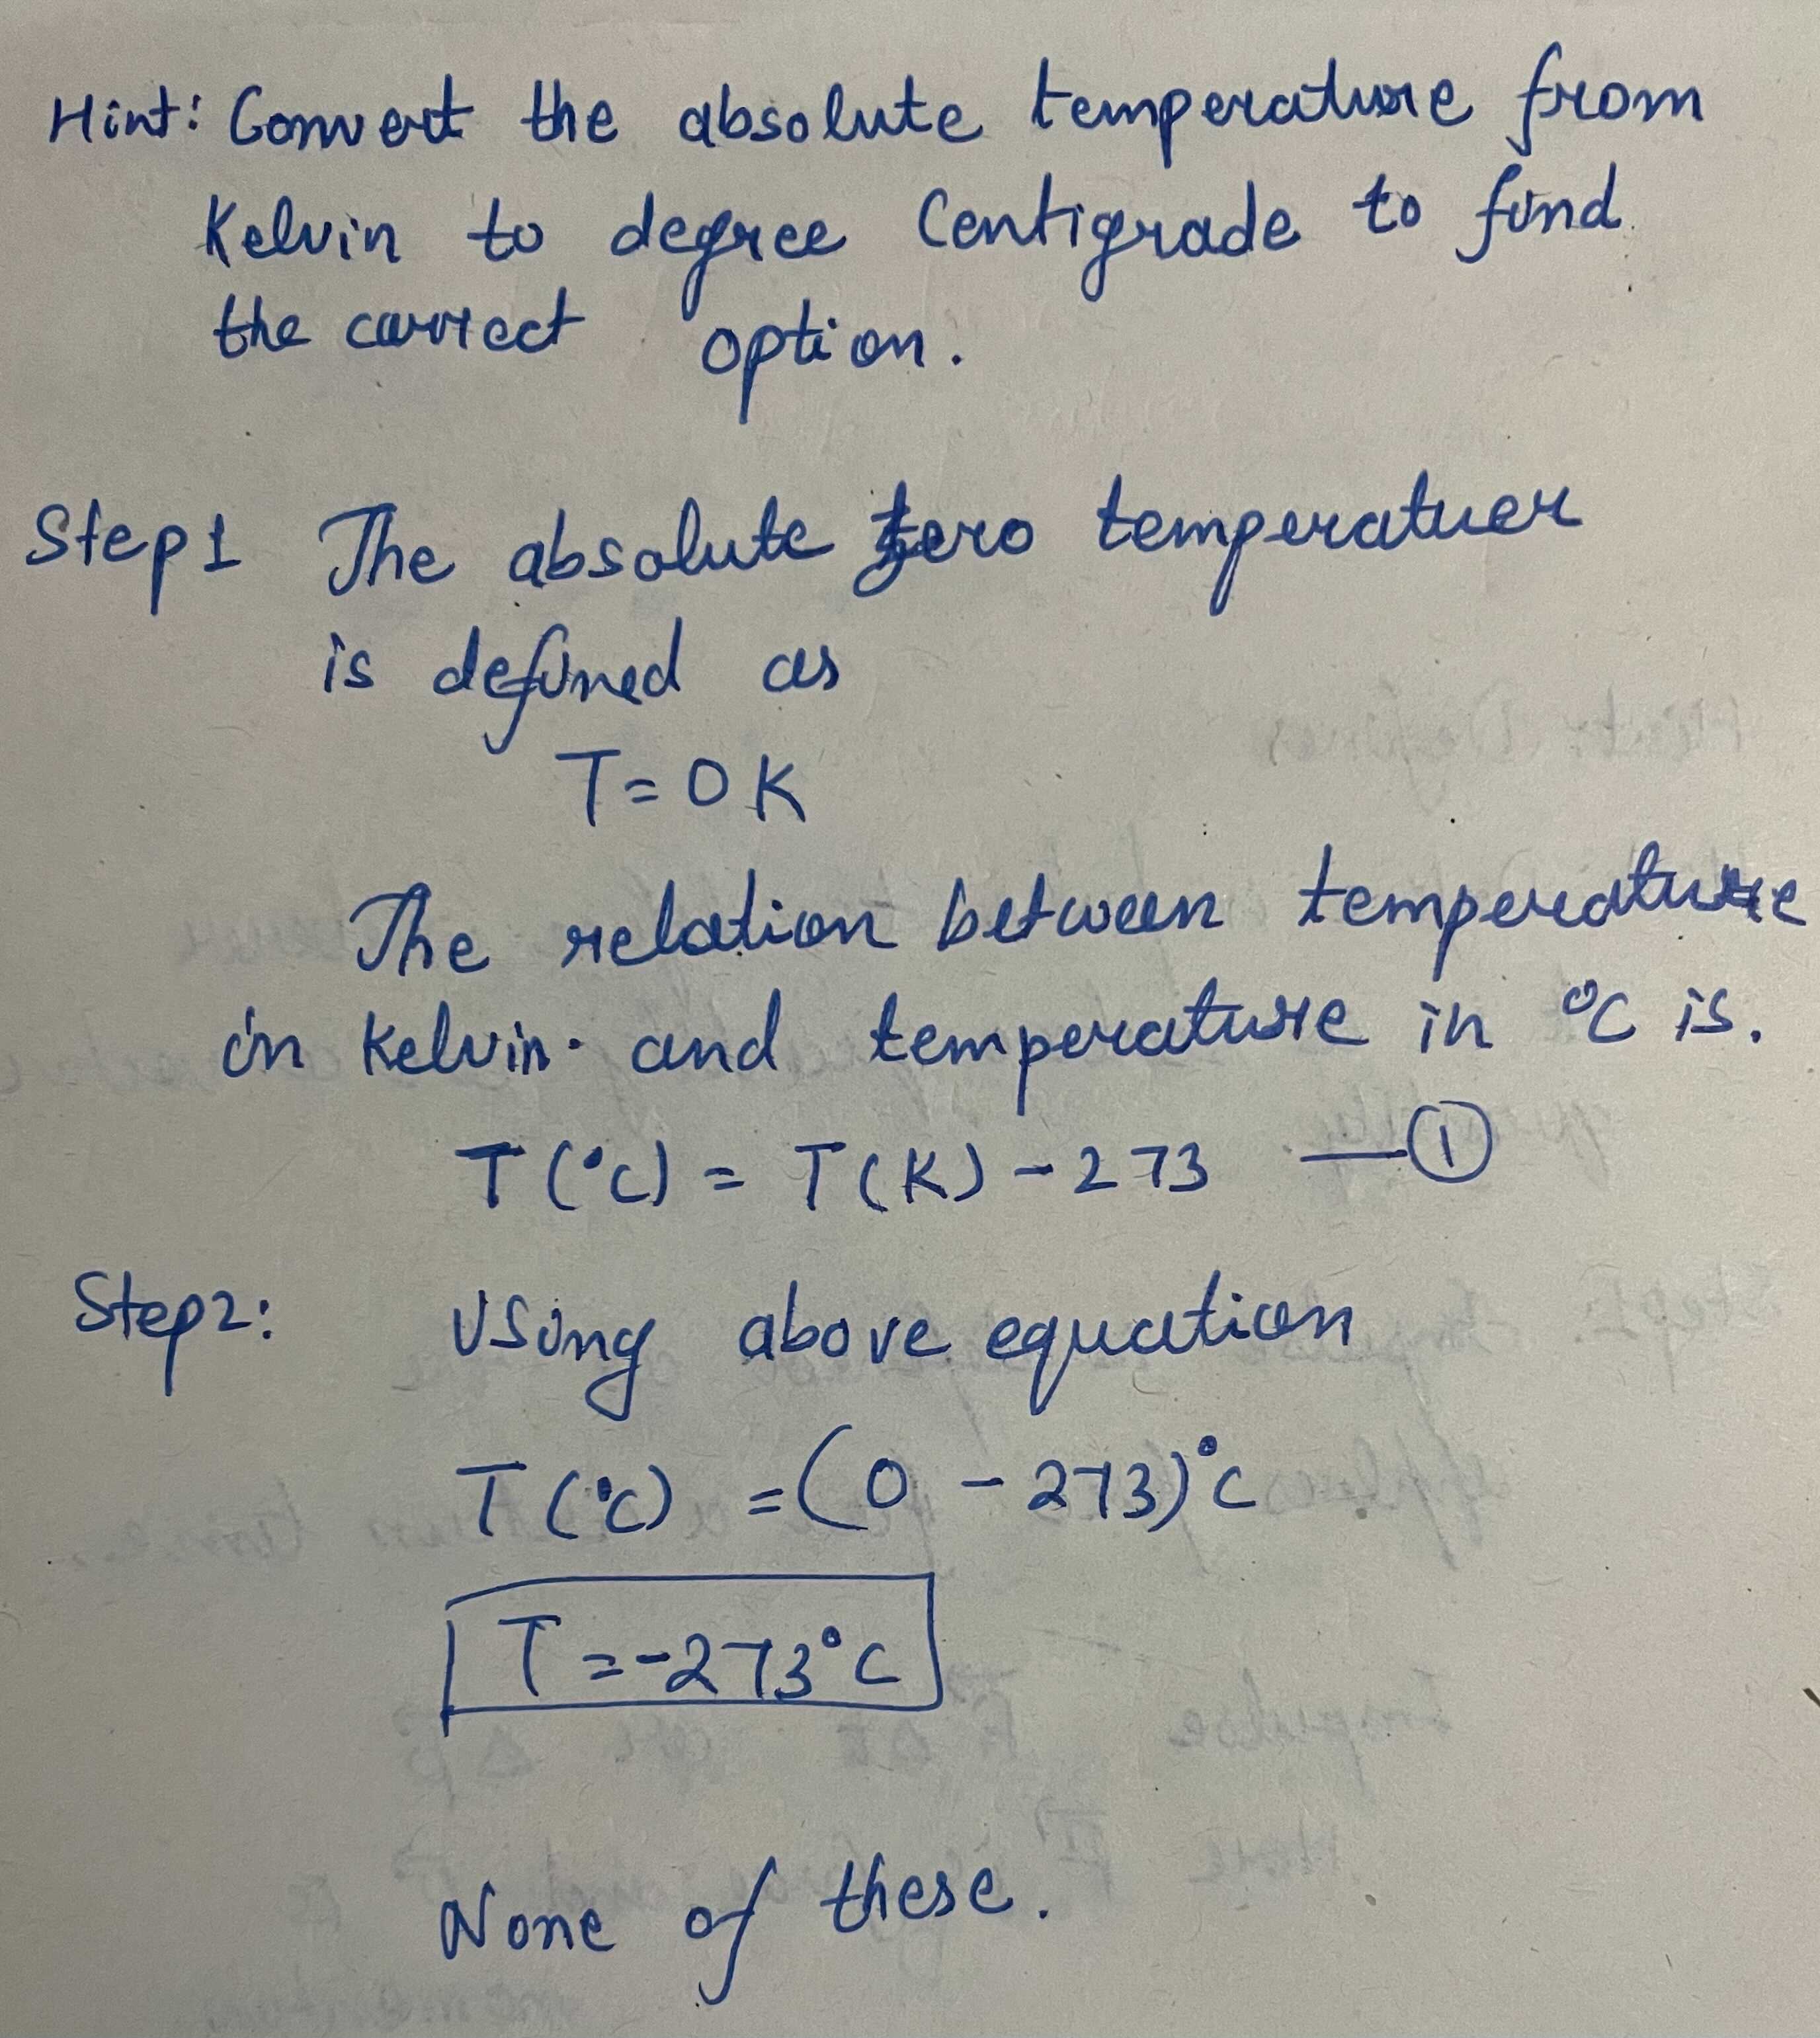 Hint: Convert the absolute temperature from
Kelvin to degree Centigrade to find
the correct option.
Step 1 The absolute zero temperatuer
is defined as
T = 0 K
The relation between temperature
in Kelvin. and temperature in °C is.
T (°C) = T (K) - 273 — ①
Step 2: Using above equation
T (°C) = (0 - 273)°C
T = -273°C
None of these.